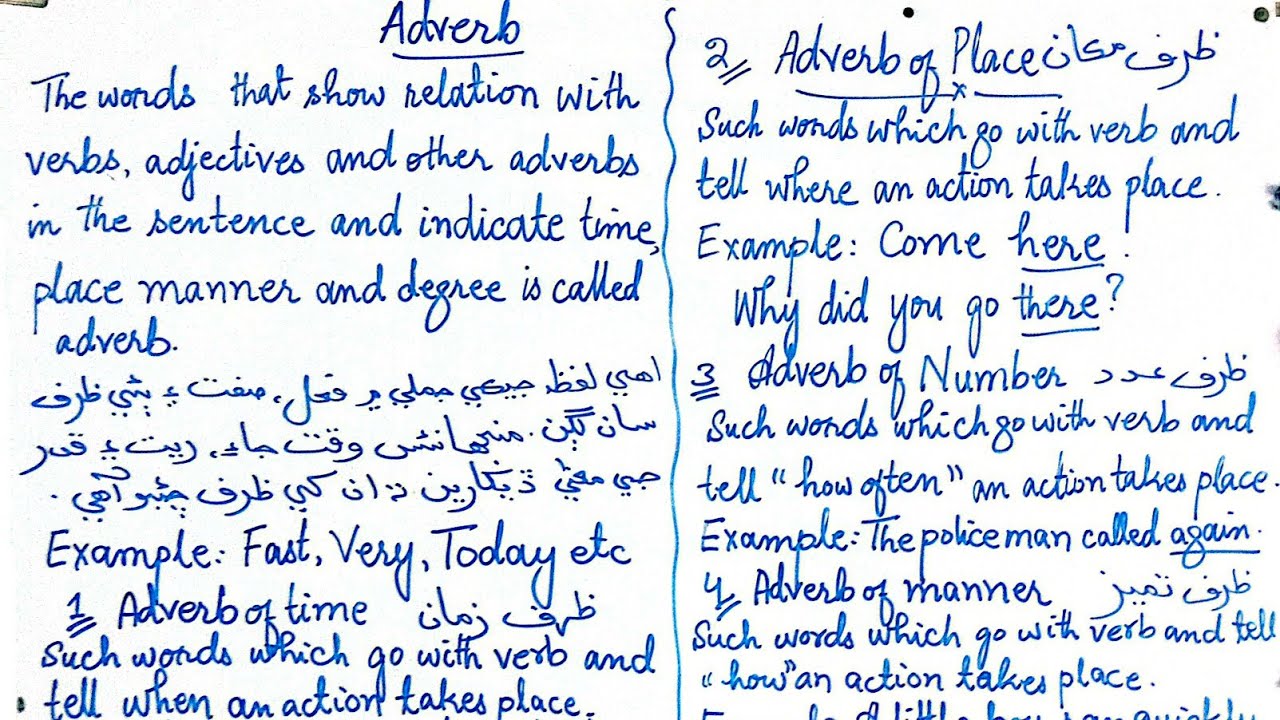 Adverb
The words that show relation with
verbs, adjectives and other adverbs
in the sentence and indicate time,
place manner and degree is called
adverb.
اهي لفظ جيڪي جملي ۾ فعل، صفت ۽ ٻئي ظرف
سان لڳن. منجهانئس وقت جاءِ، ريت ۽ قدر
جي معنيٰ ڏيکارين ته ان کي ظرف چئبو آهي.
Example: Fast, Very, Today etc
1 Adverb of time ظرف زمان
Such words which go with verb and
tell when an action takes place.
2 Adverb of Place ظرف مڪان
Such words which go with verb and
tell where an action takes place.
Example: Come here.
Why did you go there?
3 Adverb of Number ظرف عدد
Such words which go with verb and
tell "how often" an action takes place.
Example: The policeman called again.
4 Adverb of manner ظرف تميز
Such words which go with verb and tell
"how" an action takes place.
Example A little boy ran quickly